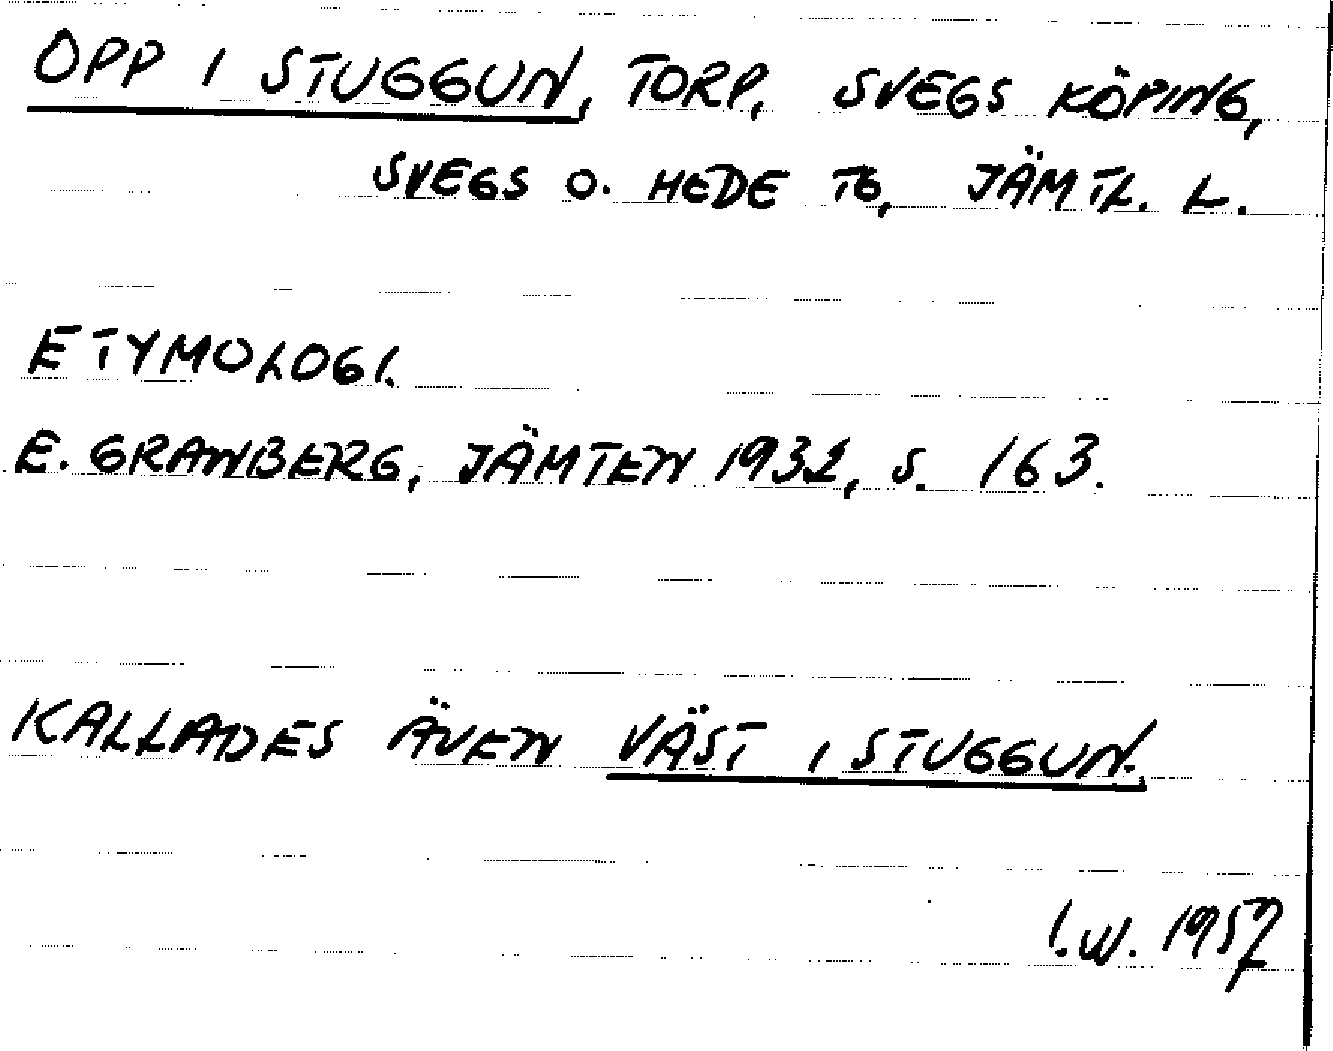 OPP I STUGGUN, TORP, SVEGS KÖPING,
SVEGS O. HEDE TG, JÄMTL. L.
ETYMOLOGI.
E. GRANBERG, JÄMTEN 1932, S. 163.
KALLADES ÄVEN VÄST I STUGGUN.
I.W. 1957